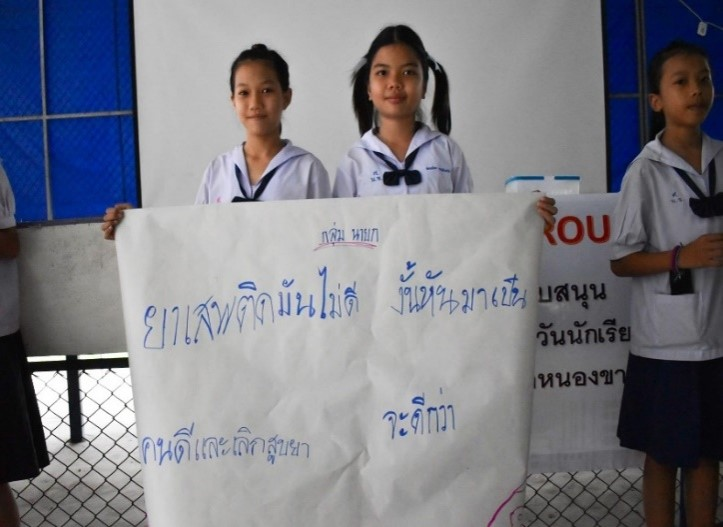 กลุ่ม นายก
ยาเสพติดมันไม่ดี งั้นหันมาเป็น
คนดีและเลิกสูบยา จะดีกว่า
ROU
บสนุน
วันนักเรีย
หนองขา